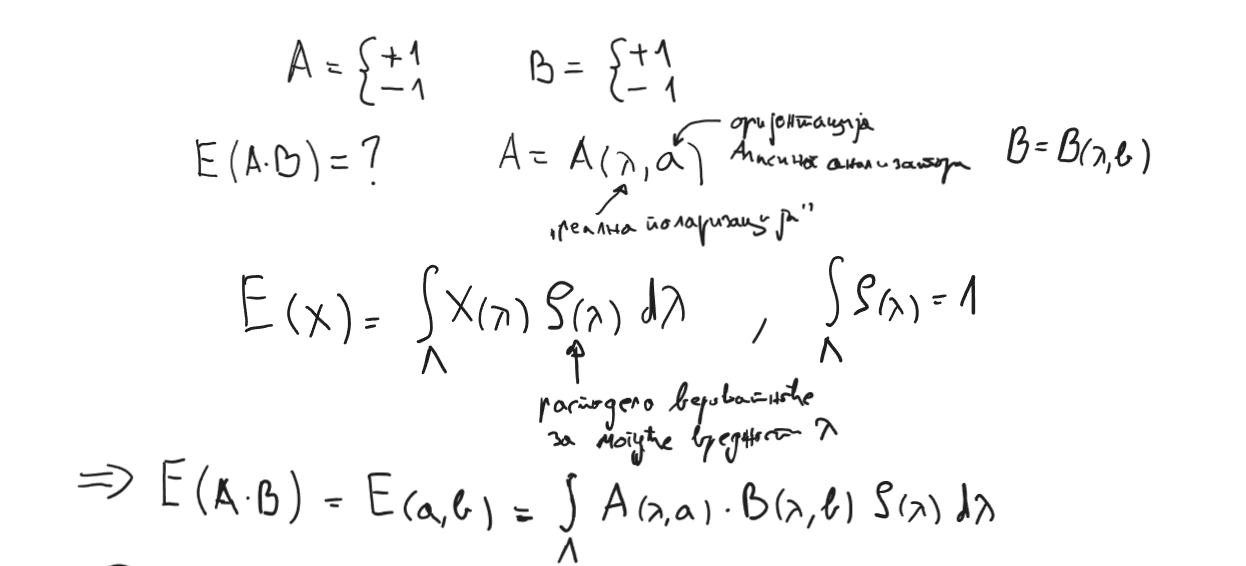 A = { +1 −1    B = { +1 −1
оријентација
E(A·B) = ?    A = A(λ, a)    Алисиног анализатора    B = B(λ, b)
„реална поларизација"
E(X) = ∫_Λ X(λ) ρ(λ) dλ ,    ∫_Λ ρ(λ) = 1
расподела вероватноће
за могуће вредности λ
⇒ E(A·B) = E(a,b) = ∫_Λ A(λ,a) · B(λ,b) ρ(λ) dλ